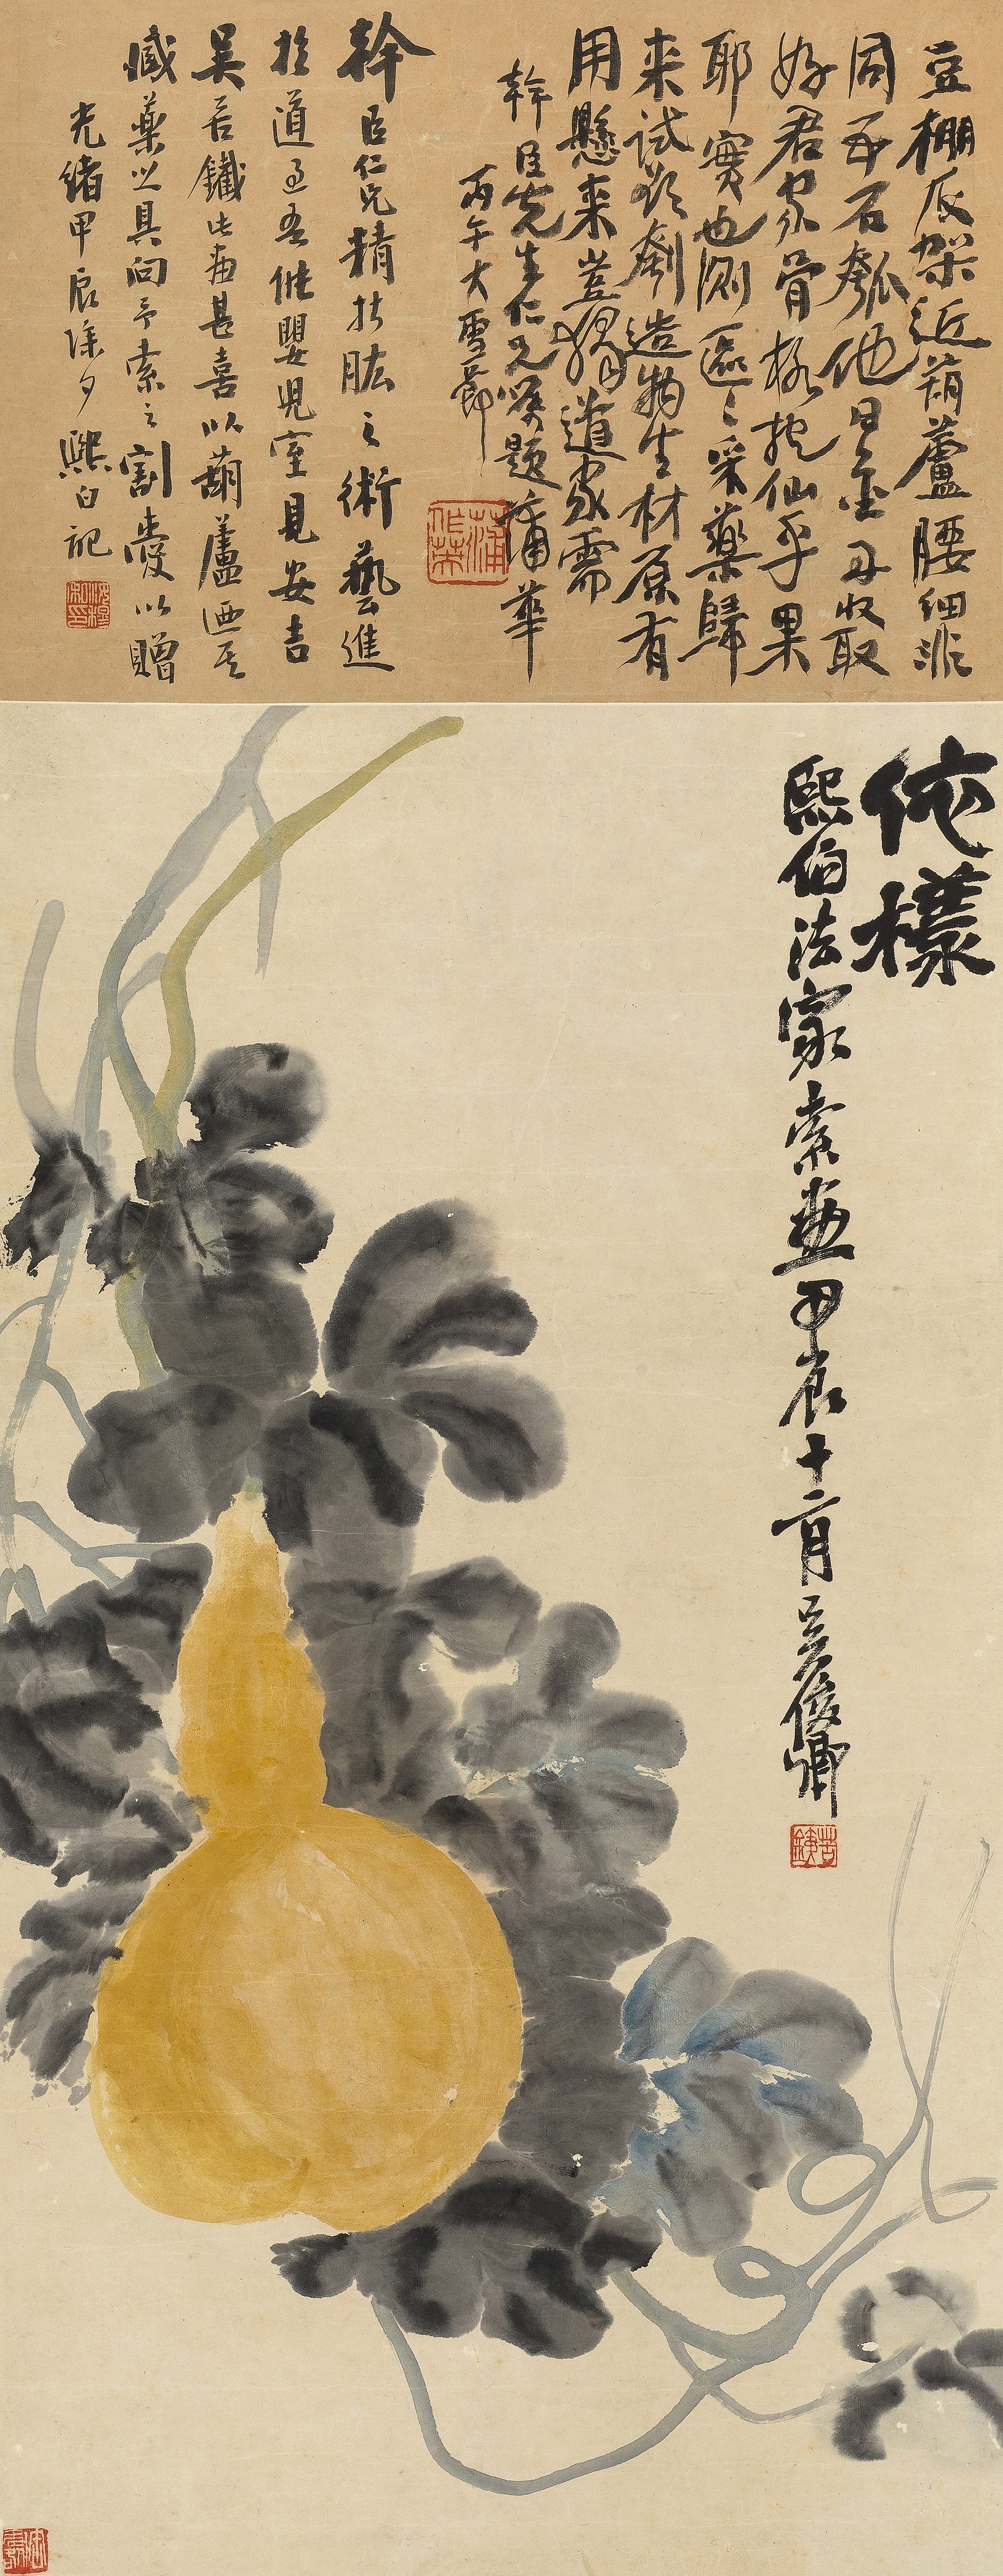 豆棚底架近葫蘆腰細非
同五石瓠他日金丹收取
好君家骨格抱仙乎果
耶實也測區區采藥歸
来試欲刳造物生材原有
用懸来豈獨道家需
幹臣先生仁兄屬題蒲華
丙午大雪節
蒲作英
幹臣仁兄精於肱之術藝進
於道過吾俶嬰児室見安吉
吴苦鐵此畫甚喜以葫蘆迺其
臧藥之具向予索之割愛以贈
光緒甲辰除夕熙白記
依樣
熙伯法家索畫甲辰十二月吴俊卿
苦鐵